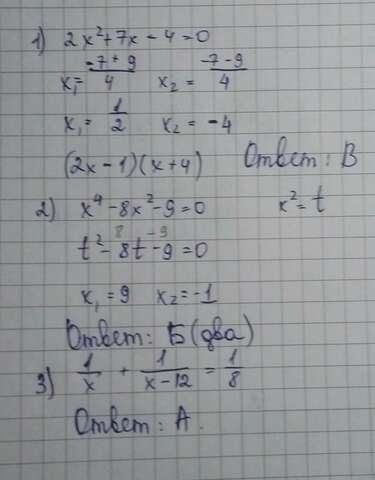 1) 2x²+7x-4=0
x₁= -7+9/4 x₂= -7-9/4
x₁= 1/2 x₂= -4
(2x-1)(x+4) Ответ: В
2) x⁴-8x²-9=0 x²=t
8 -9
t²-8t-9=0
x₁=9 x₂=-1
Ответ: Б (два)
3) 1/x + 1/x-12 = 1/8
Ответ: А.